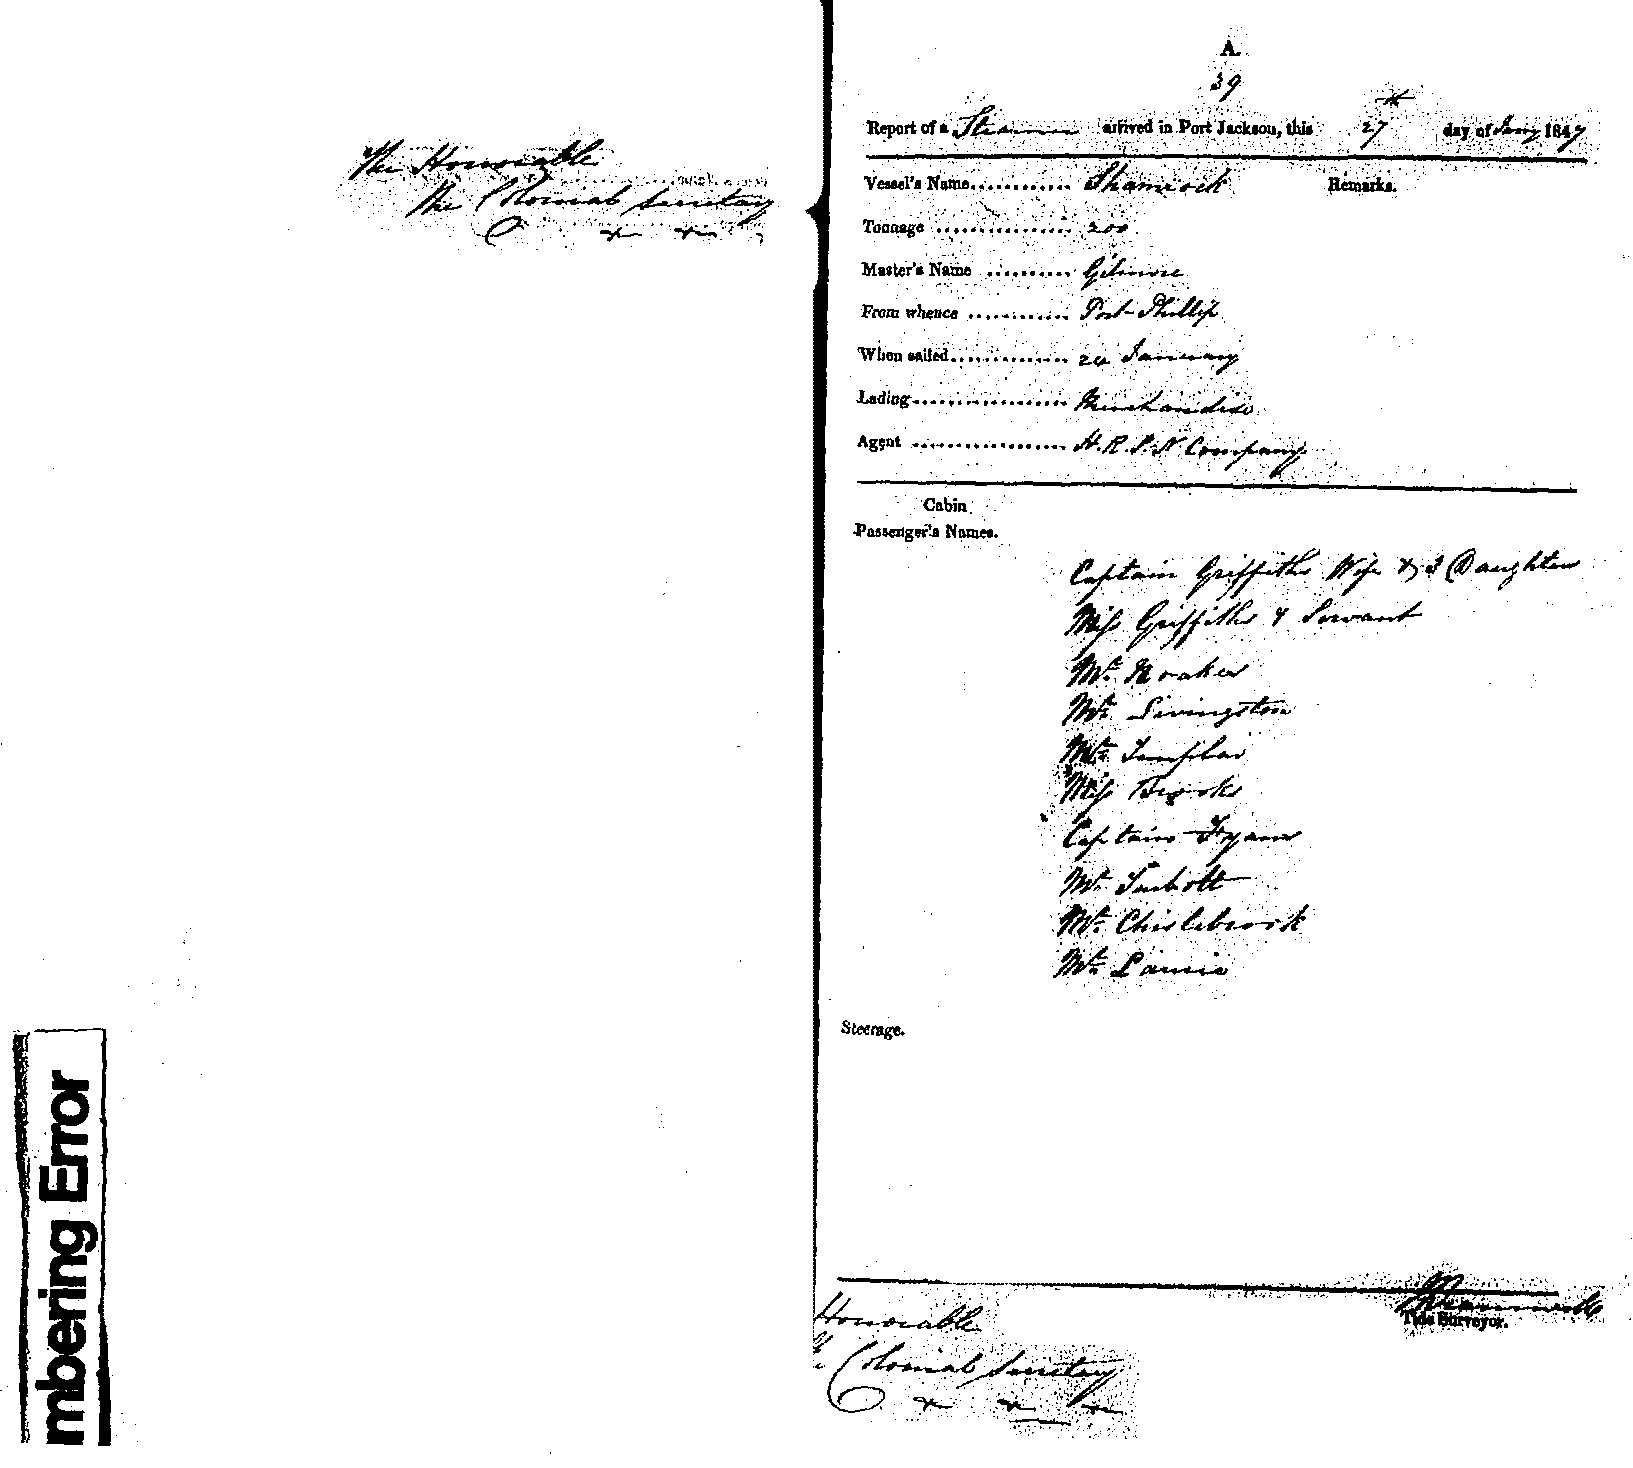 The Honorable
The Colonial Secretary
A.
39
Report of a Steamer arrived in Port Jackson, this 27th day of Jany 1847
Vessel's Name............ Shamrock Remarks.
Tonnage ................ 200
Master's Name .......... Gilmore
From whence ............ Port Phillip
When sailed.............. 24 January
Lading................... Merchandise
Agent ................... H.R.S.N Company
Cabin
Passenger's Names.
Captain Griffiths Wife & 3 Daughters
Miss Griffiths & Servant
Mr. Noakes
Mr. Livingston
Mr. Templar
Miss Brooks
Captain Fyans
Mr. Tarbott
Mr. Chislebrook
Mr.
Steerage.
Tide Surveyor.
Honorable
The Colonial Secretary
mbering Error